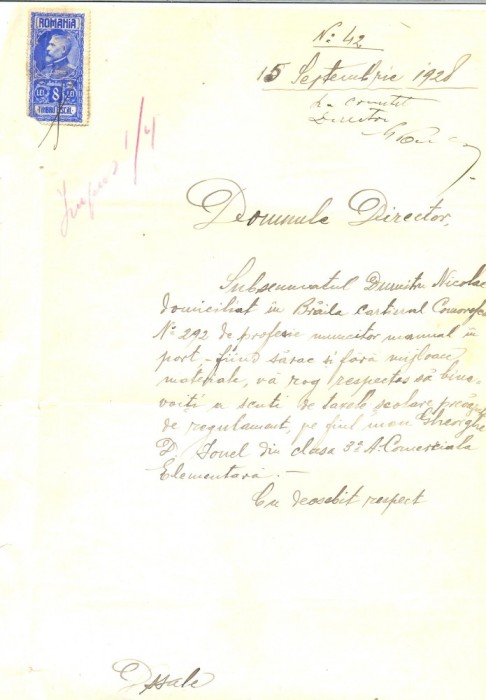 ROMANIA
LEI 8 LEI
TIMBRU FISCAL
No 42
15 Septembrie 1928
La comitet
Director
1/4
Domnule Director,
Subsemnatul Dumitru Nicolae
domiciliat în Brăila cartierul Comorofca
No 292 de profesie muncitor manual în
port - fiind sărac și fără mijloace
materiale, vă rog respectos să bine-
voiți a scuti de taxele școlare prevăzute
de regulament, pe fiul meu Gheorghe
D. Ionel din clasa 3a A. Comerciala
Elementară. -
Cu deosebit respect